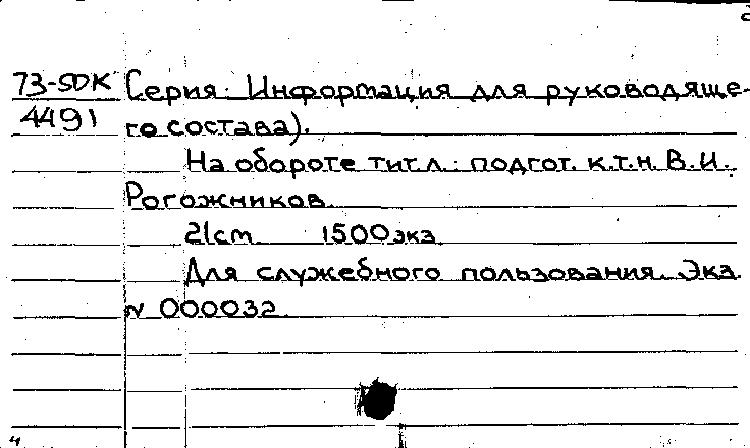 73-SDK Серия: Информация для руководяще-
4491 го состава).
На обороте тит.л.: подгот. к.т.н. В.И.
Рогожников.
21cm 1500экз.
Для служебного пользования. Экз.
N 000032.
4